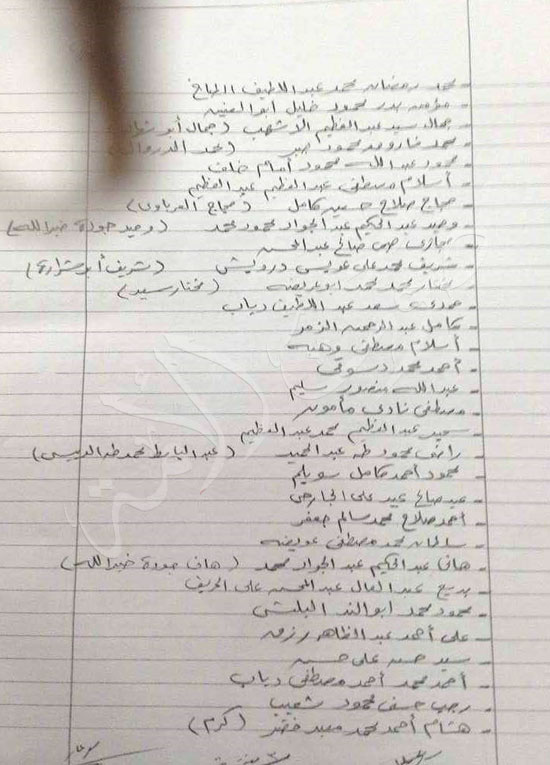 - محمد رمضان محمد عبد اللطيف الطباخ
- مؤمن بدر محمود خليل ابو العنيه
- جمال سيد عبد العظيم الاشهب (جمال أبو
- محمد فاروق محمود (محمد
- محمود عبد الله محمود أمام خلف
- أسلام مصطفى عبد العظيم عبد العظيم
- حجاج صلاح حسين كامل (حجاج العرباوى)
- وحيد عبد الحكيم عبد الجواد محمود محمد (وحيد جودة خير الله)
- حجازى صالح عبد المحسن
- شريف محمد على عويس درويش (شريف أبو شرارة)
- مختار محمد محمد ابو عريضه (مختار سيد)
- حمدى سعد عبد اللطيف دياب
- كامل عبد الرحمن الزمر
- أسلام مصطفى وهبه
- أحمد محمد دسوقى
- عبد الله منصور سليم
- مصطفى شادى مأمون
- سعيد عبد العظيم محمد عبد العظيم
- رافت محمود طه عبد المجيد (عبد الباسط محمد طه
- محمود أحمد كامل سويلم
- عيد صالح عيد على الجارحى
- أحمد صلاح محمد سالم جعفر
- سلمان محمد مصطفى عويضه
- هانى عبد الحكيم عبد الجواد محمد (هانى جودة خير الله)
- عبد العال عبد المحسن على
- محمود محمد ابو الند
- على أحمد عبد الظاهر رزق
- سيد حسن على حسن
- أحمد محمد أحمد مصطفى دياب
- رجب حسنى محمود شعيب
- هشام أحمد محمد معبد خضر (كرم)